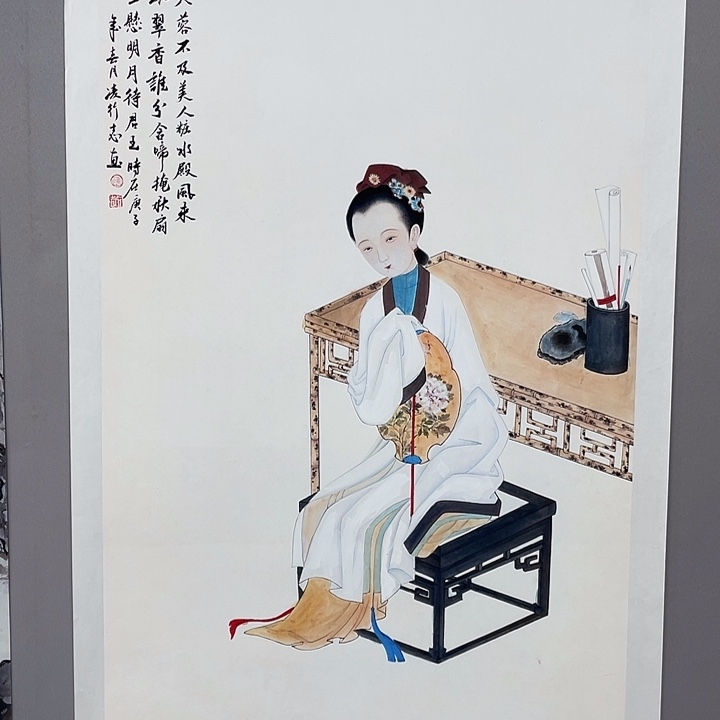 蓉不及美人粧水殿風来
翠香誰分含啼掩秋扇
懸明月待君王時在庚子
年春月凌行志画